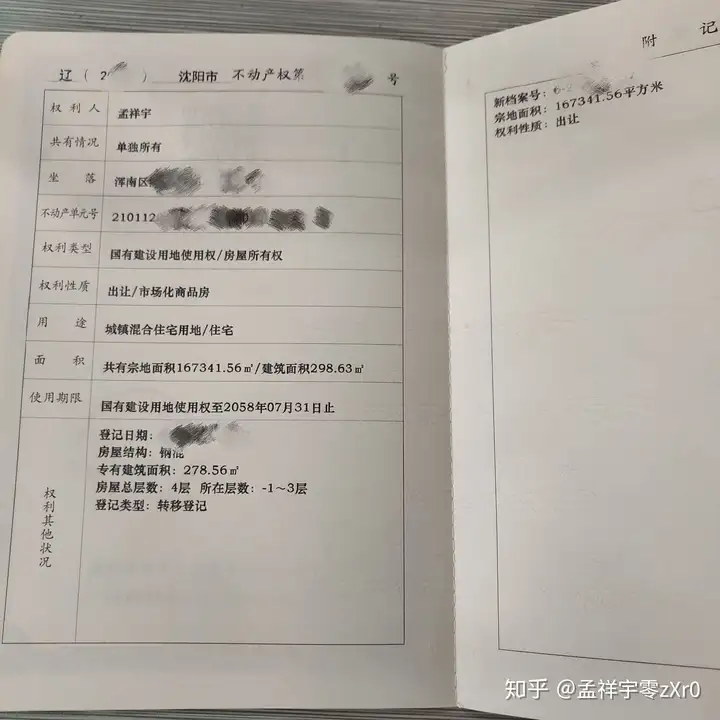 辽（2 ）沈阳市 不动产权第 号
权利人 孟祥宇
共有情况 单独所有
坐落 浑南区
不动产单元号 210112
权利类型 国有建设用地使用权/房屋所有权
权利性质 出让/市场化商品房
用途 城镇混合住宅用地/住宅
面积 共有宗地面积167341.56㎡/建筑面积298.63㎡
使用期限 国有建设用地使用权至2058年07月31日止
权利其他状况
登记日期：
房屋结构：钢混
专有建筑面积：278.56㎡
房屋总层数：4层 所在层数：-1～3层
登记类型：转移登记
附记
新档案号：6-2
宗地面积：167341.56平方米
权利性质：出让
知乎 @孟祥宇零zXr0